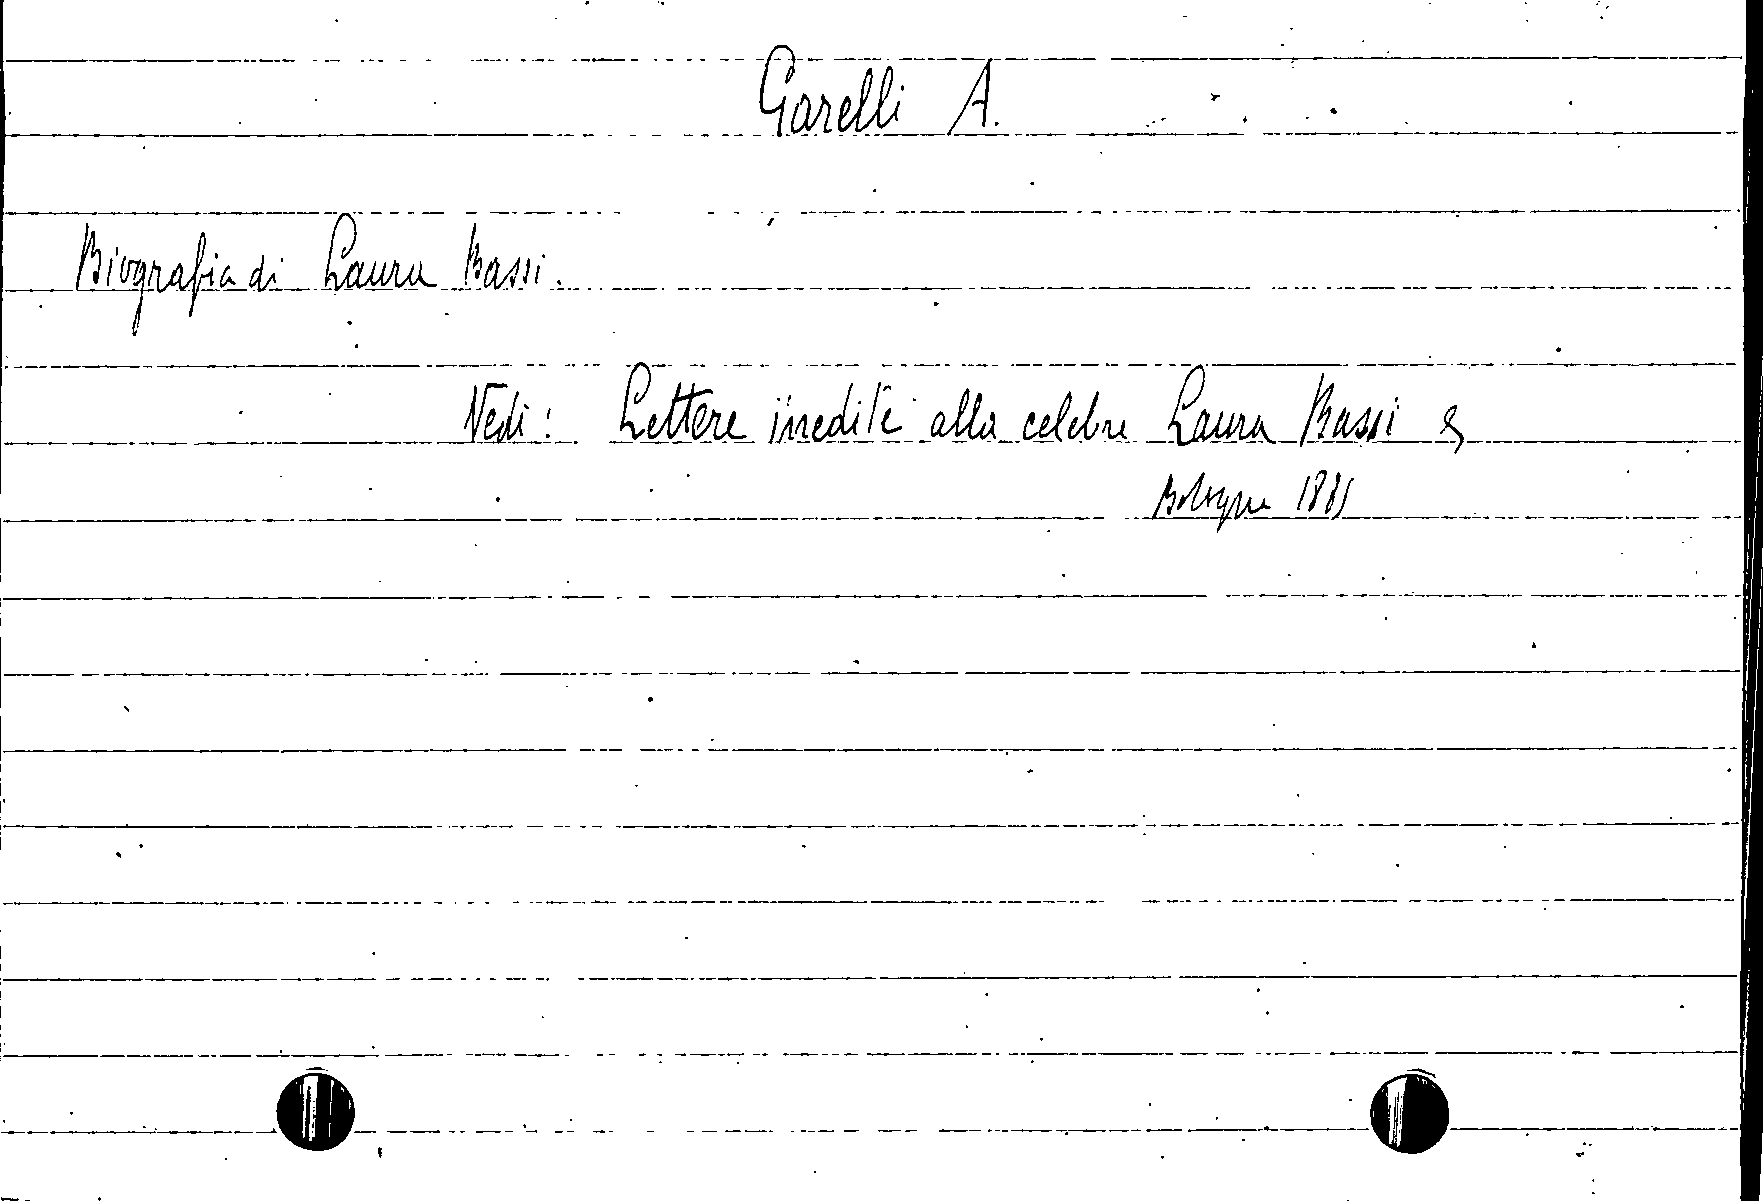 Garelli A.
Biografia di Laura Bassi.
Vedi: Lettere inedite alla celebre Laura Bassi &
Bologna 1885